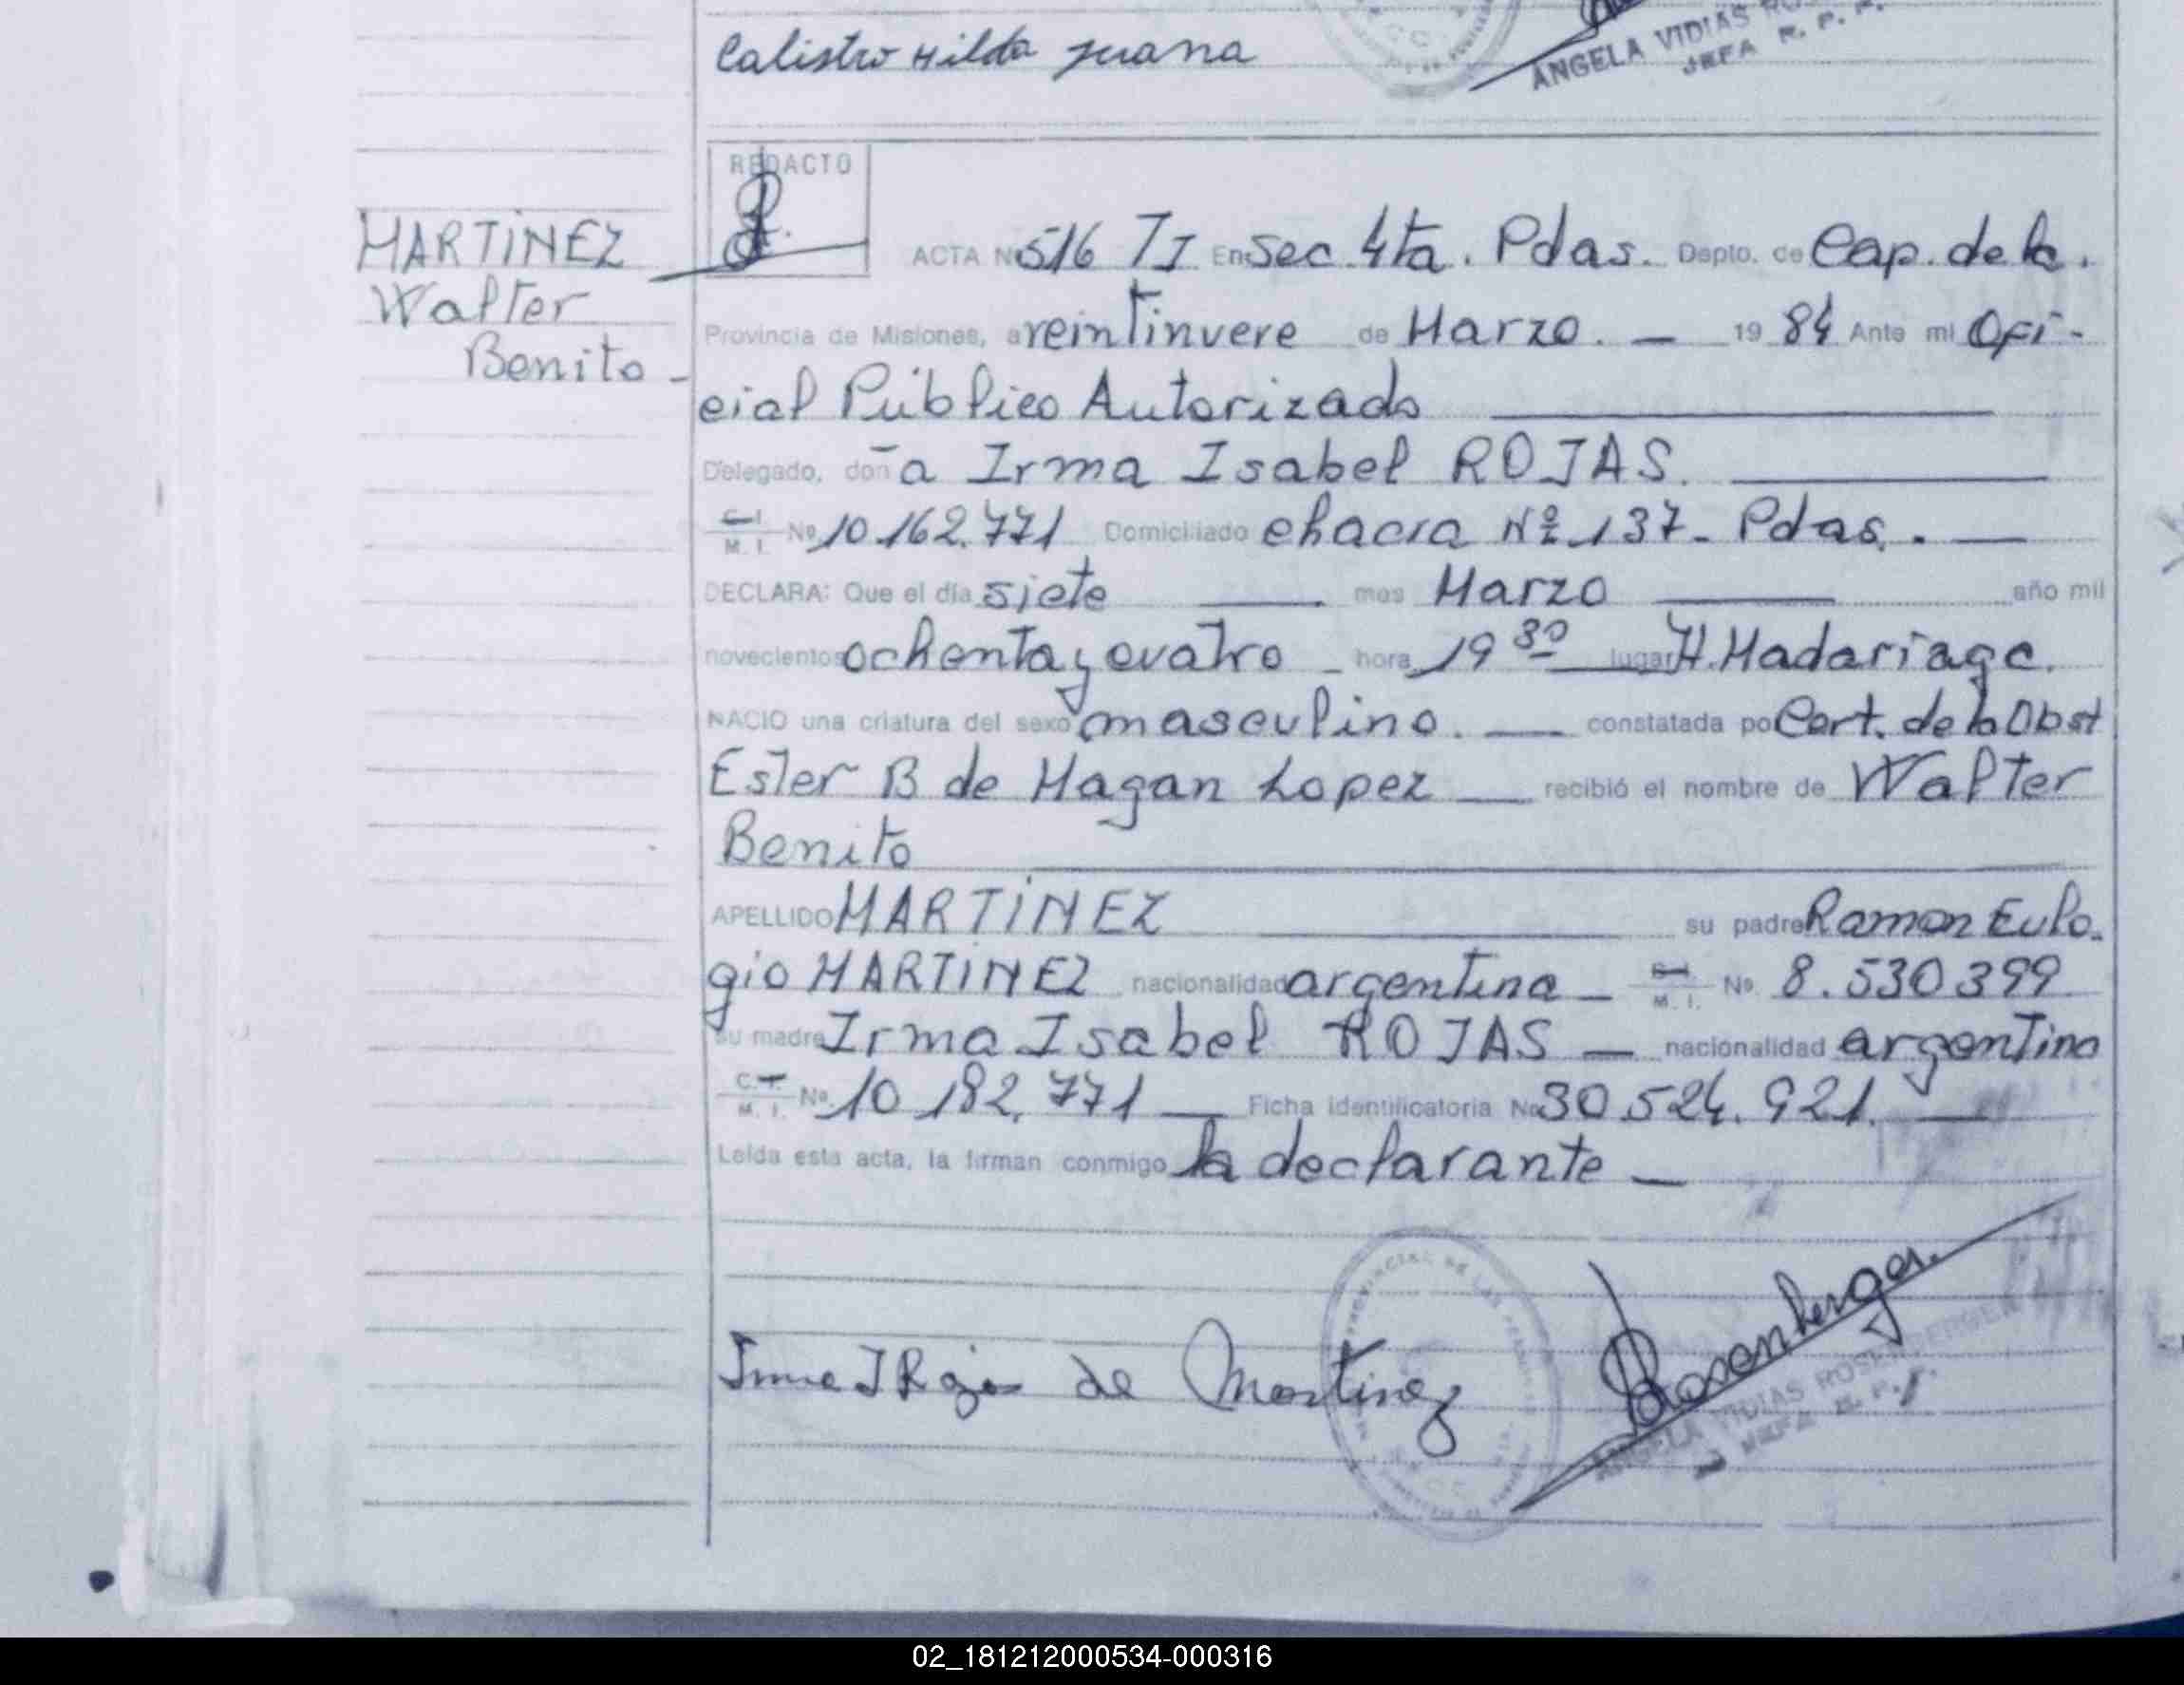 Calistro Hilda Juana
ANGELA VIDIAS
JEFA R. P. P.
REDACTO
MARTINEZ
Walter
Benito -
ACTA Nº 516 TI En Sec 4ta. Pdas. Depto. de Cap. de la.
Provincia de Misiones, a veintinveve de Marzo. — 19 84 Ante mi Ofi-
cial Público Autorizado
Delegado, don a Irma Isabel ROJAS.
C.I. M. I. Nº 10.162.771 Domiciliado chacra Nº 137 - Pdas. . —
DECLARA: Que el día siete — . mes Marzo — año mil
novecientos ochenta y cuatro - hora 19 30 lugar H. Madariaga.
NACIO una criatura del sexo masculino. — constatada por Cert. de la Obst
Ester B de Hagan Lopez — recibió el nombre de Walter
Benito
APELLIDO MARTINEZ su padre Ramon Eulo-
gio MARTINEZ nacionalidad argentina — C.I. M. I. Nº 8.530399
su madre Irma Isabel ROJAS — nacionalidad argentina
C. I. M. I. Nº 10.182.771 — Ficha identificatoria Nº 30.524.921. —
Leída esta acta, la firman conmigo la declarante —
Irma I Rojas de Martinez
Rosenberger.
PROVINCIAL DE LAS PERSONAS
ANGELA VIDIAS ROSENBERGER
JEFA R. P. P.
02_181212000534-000316